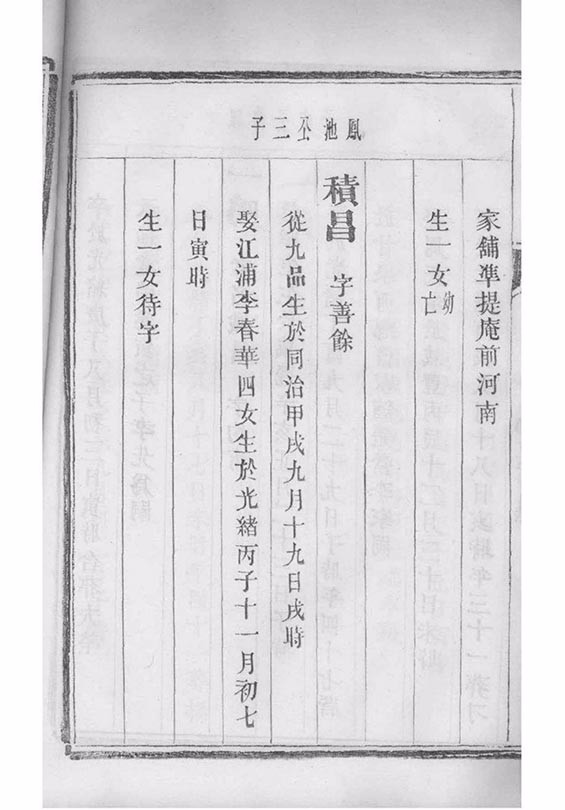 鳳池公三子
家舖準提庵前河南
生一女幼亡
積昌 字善餘
從九品生於同治甲戌九月十九日戌時
娶江浦李春華四女生於光緒丙子十一月初七
日寅時
生一女待字